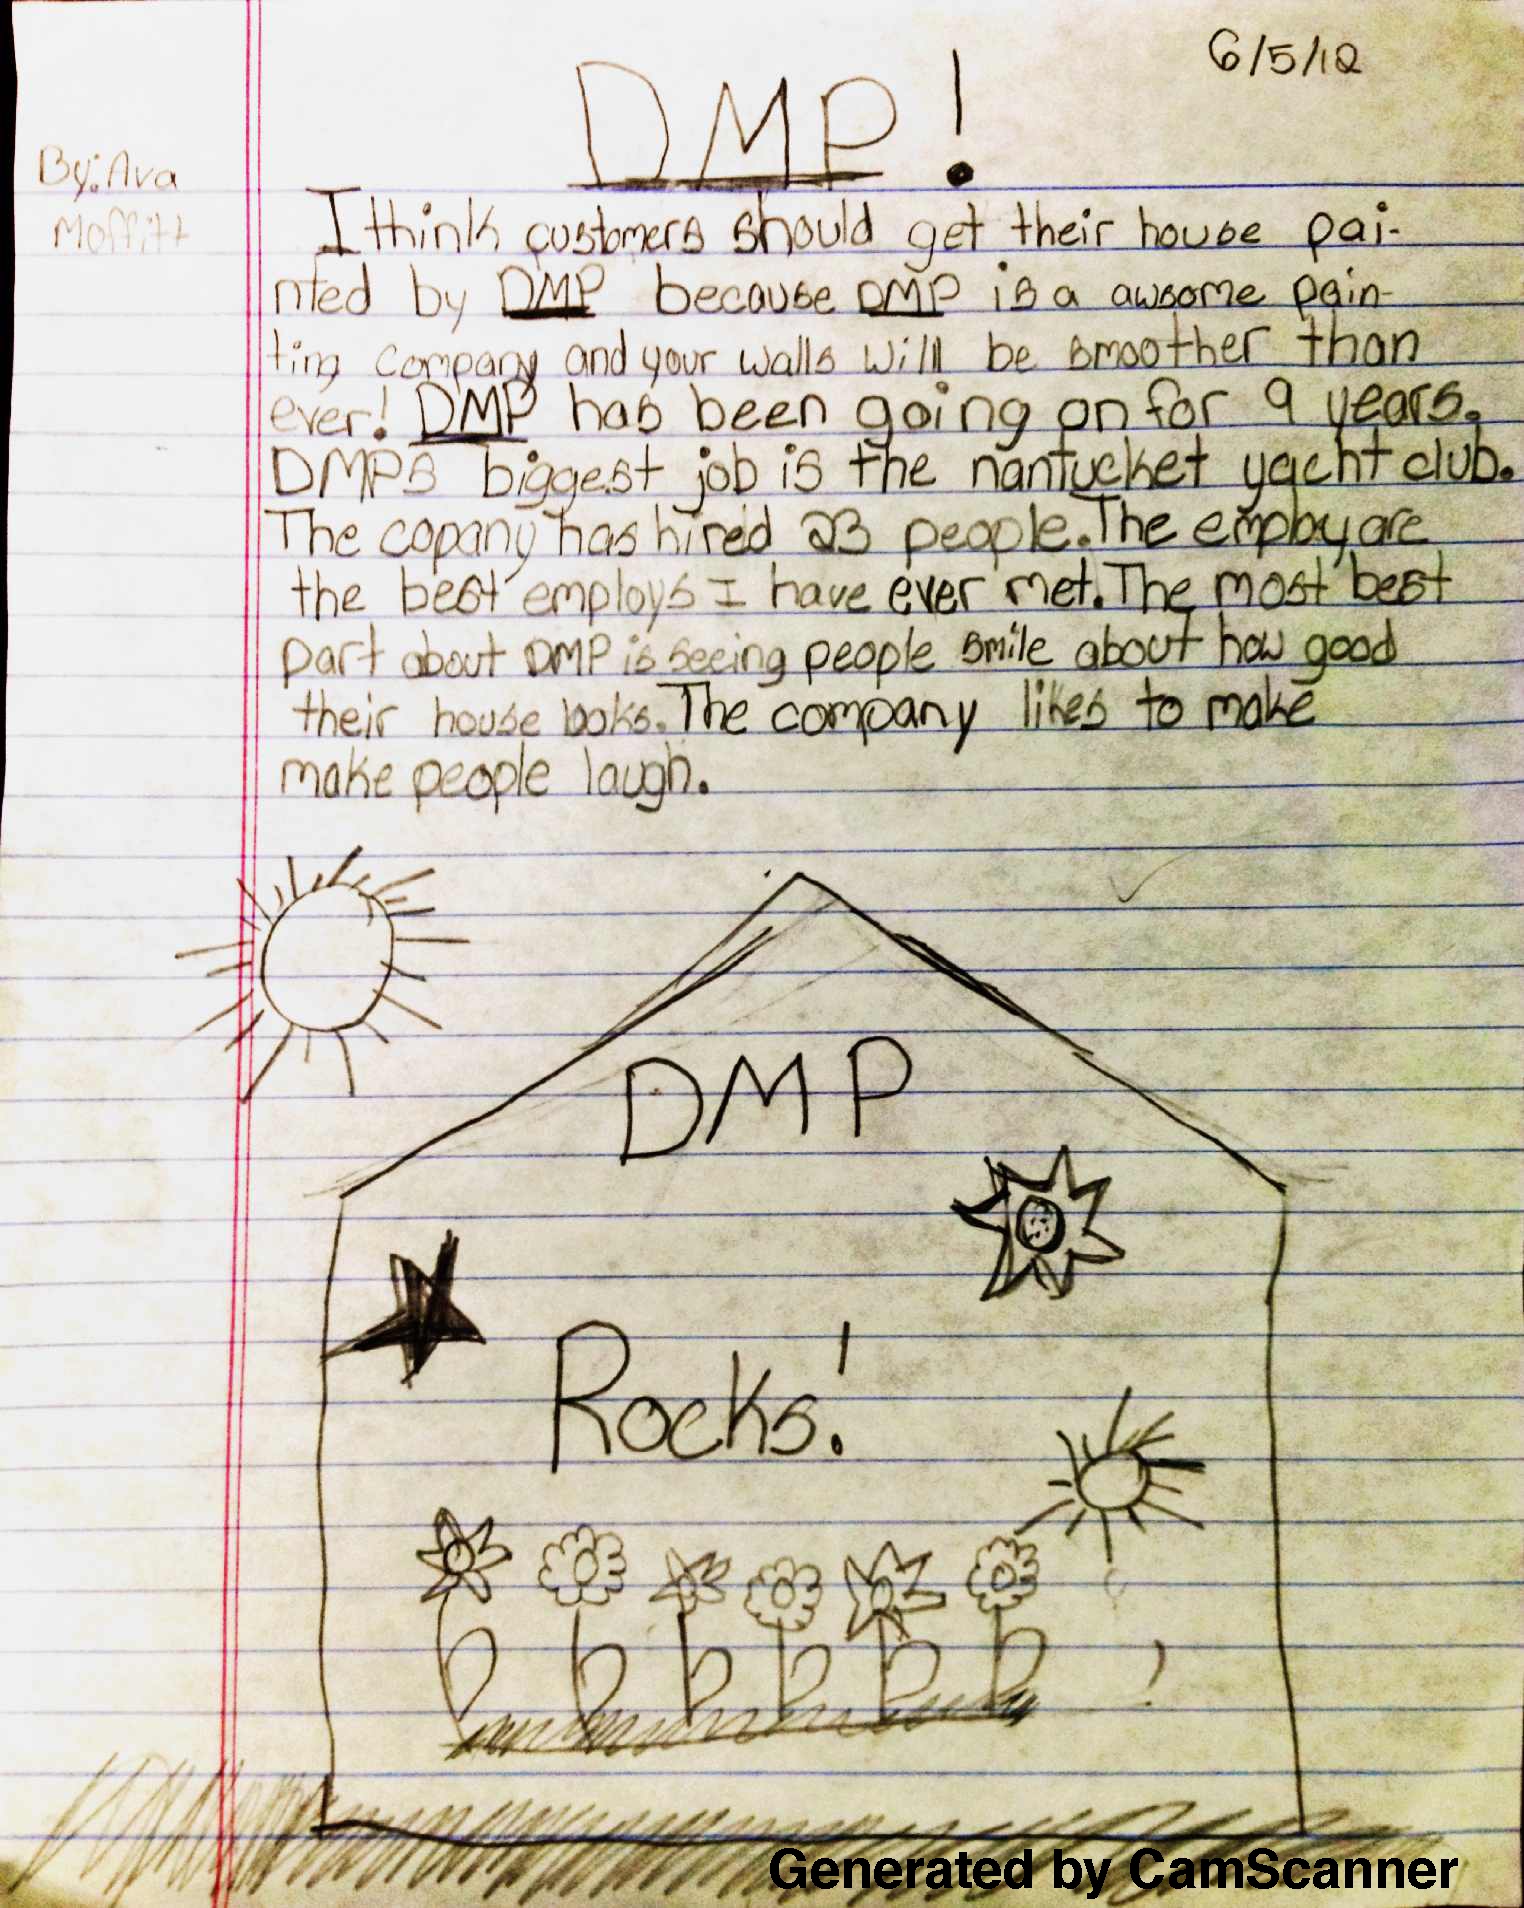 6/5/12
DMP!
By: Ava
Moffitt
I think customers should get their house pai-
nted by DMP because DMP is a awsome pain-
ting company and your walls will be smoother than
ever! DMP has been going on for 9 years.
DMPS biggest job is the nantucket yacht club.
The copany has hired 23 people. The employ are
the best employs I have ever met. The most best
part about DMP is seeing people smile about how good
their house looks. The company likes to make
make people laugh.
DMP
Rocks!
Generated by CamScanner